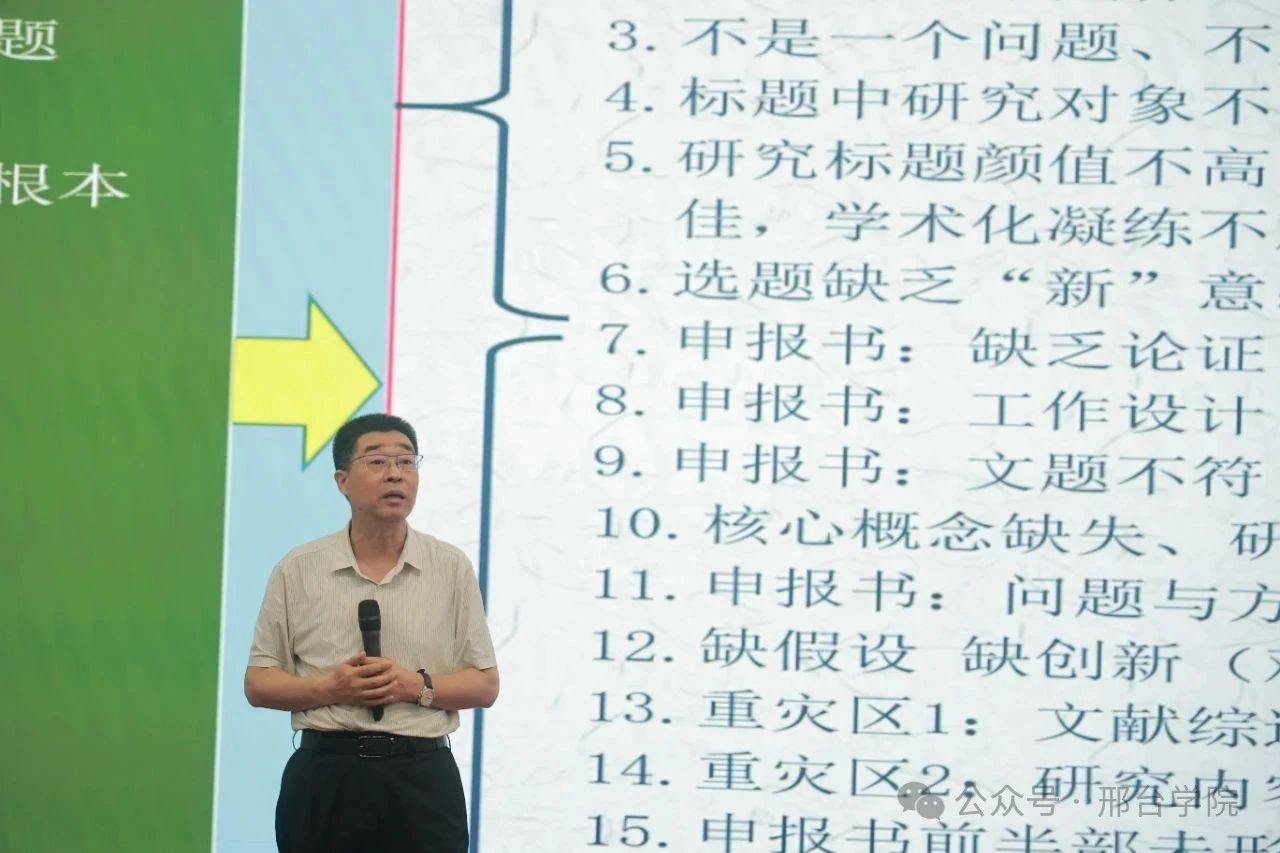 题
根本
3. 不是一个问题、不
4. 标题中研究对象不
5. 研究标题颜值不高
佳，学术化凝练不
6. 选题缺乏“新”意
7. 申报书：缺乏论证
8. 申报书：工作设计
9. 申报书：文题不符
10. 核心概念缺失、研
11. 申报书：问题与方
12. 缺假设 缺创新（
13. 重灾区1：文献综述
14. 重灾区2：研究内容
15. 申报书前半部未形
公众号·邢台学院